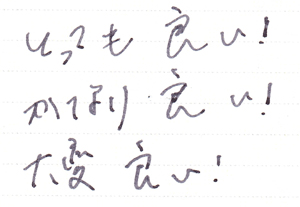 とっても良い!
かなり良い!
大変良い!